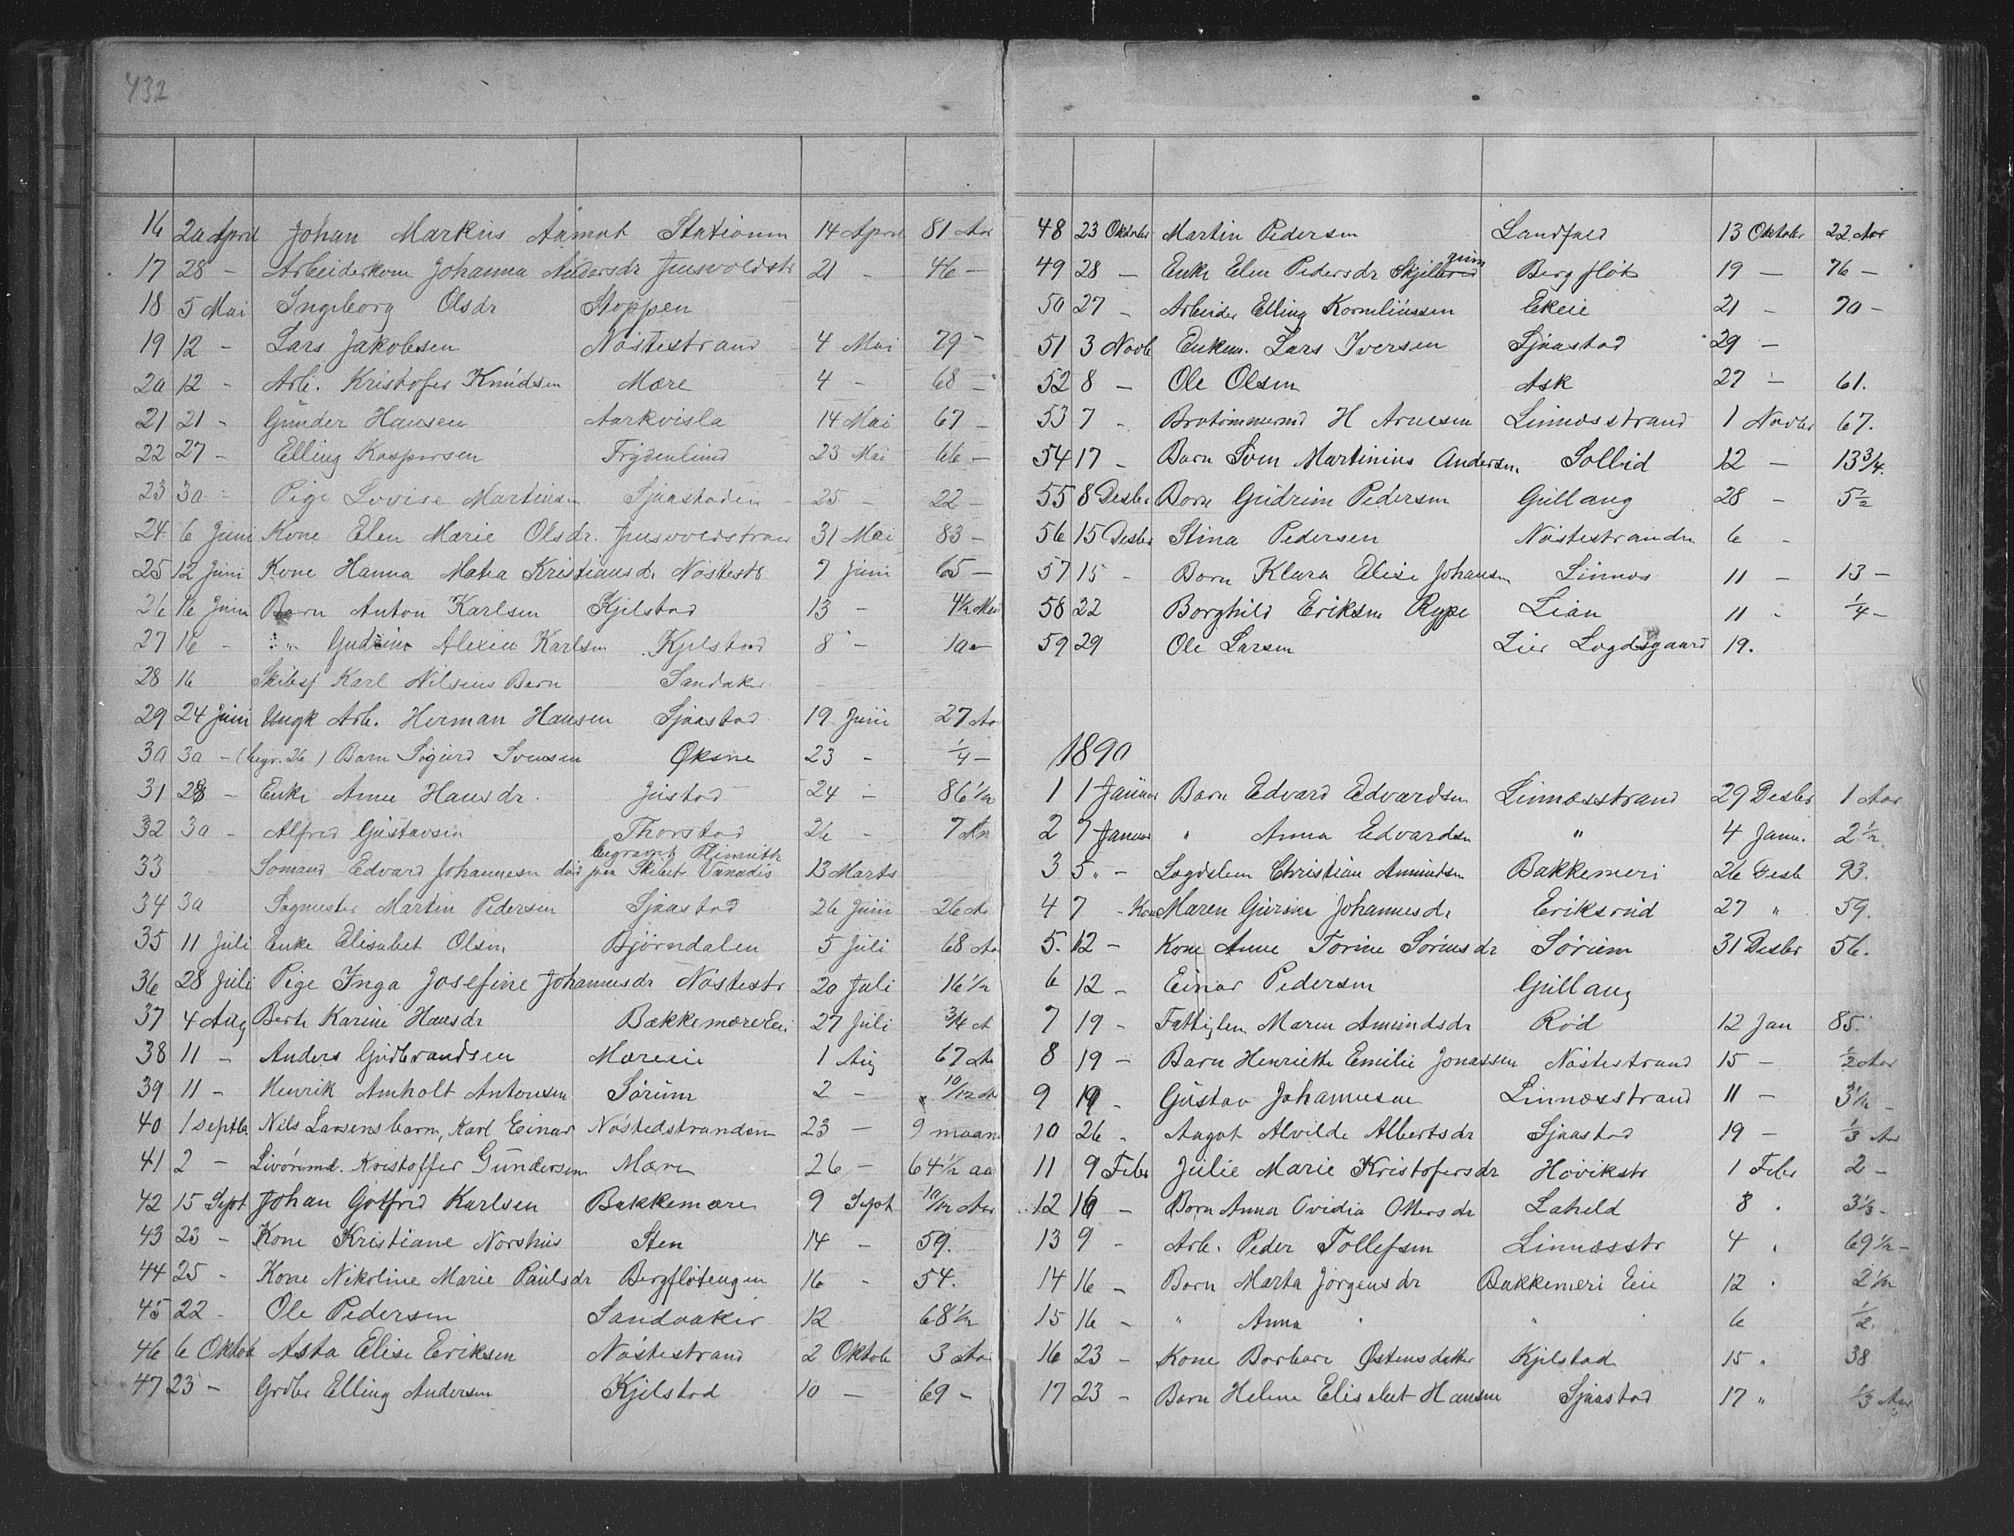 432
16 20 April Johan Markus Aamot Stationen 14 April 81 Aar
17 28 - Arbeiderkone Johanna Andersdr Jensvoldstr 21 - 46 -
18 5 Mai Ingeborg Olsdr Stoppen
19 12 - Lars Jakobsen Nöstestrand 4 Mai 79 -
20 12 - Arb. Kristofer Knudsen Mære 4 - 68 -
21 21 - Gunder Hansen Aarkvisla 14 Mai 67 -
22 27 - Elling Kaspersen Frydenlund 23 Mai 66 -
23 30 - Pige Lovise Martinsen Sjaastaden 25 - 22 -
24 6 Juni Kone Elen Marie Olsdr. Jensvoldstrand 31 Mai 83 -
25 12 Juni Kone Hanna Matea Kristiansdr Nöstestr 7 Juni 65 -
26 16 Juni Barn Anton Karlsen Kjelstad 13 - 4½ Md
27 16 - " Gudrun Alexia Karlsen Kjelstad 8 - 10 -
28 16 Skibsf Karl Nilsens Barn Sandaker
29 24 Juni Ungk Arb. Herman Hansen Sjaastad 19 Juni 27 Aa
30 30 - (begr. 26) Barn Sigurd Svensen Øksne 23 - ¼ -
31 28 - Enke Anne Hansdr. Justad 24 - 86½
32 30 - Alfred Gustavsen Thorstad 26 - 7 Aar
33 Sømand Edvard Johannesen död paa Skibet Vanadis begravet 13 Marts
34 30 Sagmester Martin Pedersen Sjaastad 26 Juni 26 Aa
35 11 Juli Enke Elisabet Olsen Bjørndalen 5 Juli 68 Aa
36 28 Juli Pige Inga Josefine Johannesdr Nöstestr 20 Juli 16½
37 4 Aug Berte Karine Hansdr Bakkemæreeie 27 Juli ¾ A
38 11 - Anders Gudbrandsen Mæreeie 1 Aug 67 Aa
39 11 - Henrik Amholt Antonsen Sørum 2 - 10/12 Aa
40 1 Septbr. Nils Larsens barn, Karl Einar Nöstedstranden 23 - 9 maan
41 2 - Livöremd. Kristoffer Gundersen Mære 26 - 64½ aa
42 15 Sept Johan Gotfred Karlsen Bakkemære 9 Sept 10/12 Aar
43 23 - Kone Kristiane Norshus Sten 14 - 59.
44 25 - Kone Nikoline Marie Paulsdr Bergflötengen 16 - 54.
45 22 - Ole Pedersen Sandaaker 12 68½
46 6 Oktob Asta Elise Eriksen Nöstestrand 2 Oktob 3 Aar
47 23 - Grdbr Elling Andersen Kjelstad 10 - 69 -
48 23 Oktober Martin Pedersen Landfald 13 Oktober 22 Aar
49 28 - Enke Elen Pedersdr Bergflöt 19 - 76 -
50 27 - Arbeider Elling Korneliussen Ekeie 21 - 70 -
51 3 Novb Enkem. Lars Iversen Sjaastad 29 -
52 8 - Ole Olsen Ask 27 - 61.
53 7 - Brotömmermd H Arnesen Linnesstrand 1 Novbr 67.
54 17 - Barn Sven Martinius Andersen Solbid 12 - 13¾.
55 8 Desbr Barn Gudrun Pedersen Gullaug 28 - 5½
56 15 Desbr Stina Pedersen Nöstestranden 6 -
57 15 - Barn Klara Elise Johansen Linnes 11 - 13 -
58 22 Borghild Eriksen Rype Lian 11 - ¼ -
59 29 Ole Larsen Lier Lægdsgaard 19.
1890
1 1 Januar Barn Edvard Edvardsen Linnesstrand 29 Desbr 1 Aar
2 7 Januar " Anna Edvardsen " 4 Janu. 2½
3 5 " - Lægdslem Christian Amundsen Bakkemeri 26 Desb 93.
4 7 - Kone Maren Gurine Johannesdr Eriksrud 27 " 59.
5. 12 - Kone Anne Torine Sörensdr Sörum 31 Desbr 56.
6 12 - Einar Pedersen Gullaug
7 19 - Fattiglem Maren Amundsdr Röd 12 Jan 85.
8 19 - Barn Henriette Emilie Jonassen Nöstestrand 15 - ½ Aar
9 19 - Gustav Johannesen Linnesstrand 11 - 3½ -
10 26 - Aagot Alvilde Albertsdr Sjaastad 19 - ⅓ Aa
11 9 Febr Julie Marie Kristofersdr Hövikstr 1 Febr 2 -
12 16 - Barn Anna Ovidia Ottersdr Laheld 8 " 3⅓ -
13 9 - Arb. Peder Tollefsen Linnesstr 4 " 69½ -
14 16 - Barn Marta Jörgensdr Bakkemeri Eie 12 " 2½
15 16 - " Anna " " 6 ½.
16 23 - Kone Barbara Østensdatter Kjelstad 15 " 38
17 23 - Barn Helene Elisabet Hansen Sjaastad 17 " ⅓ Aar